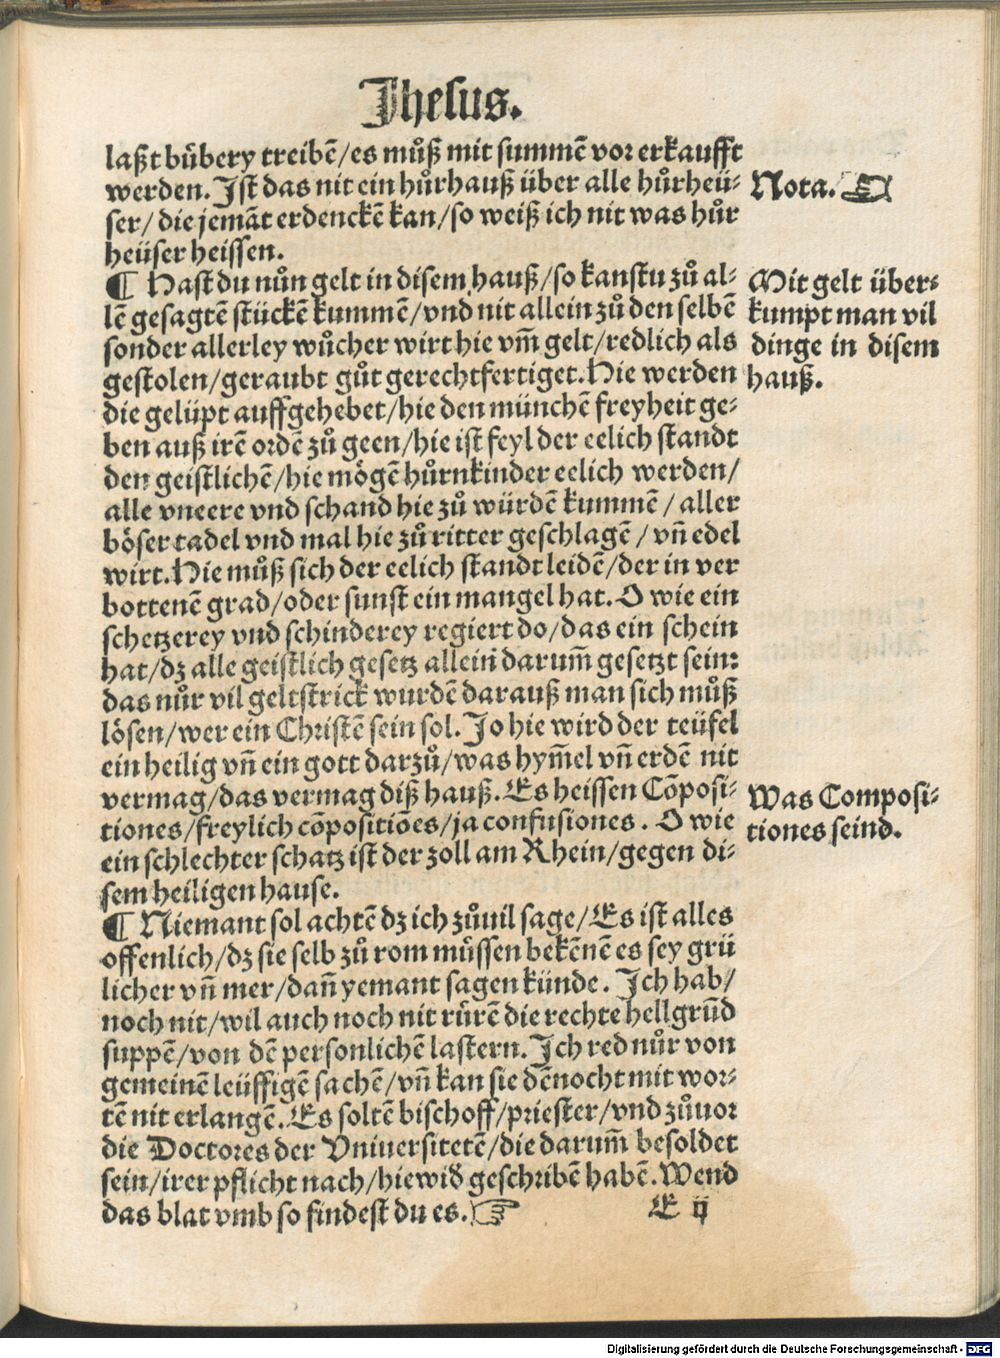 Jhesus.
laßt bůbery treibē/es můß mit summē vor erkaufft
werden. Jst das nit ein hůrhauß über alle hůrheü-
ser/ die jemāt erdenckē kan/so weiß ich nit was hůr
heüser heissen.
Nota. ☜
¶ Hast du nůn gelt in disem hauß/so kanstu zů al-
lē gesagtē stückē kummē/vnd nit allein zů den selbē
sonder allerley wůcher wirt hie vm̄ gelt/redlich als
gestolen/geraubt gůt gerechtfertiget. Hie werden
die gelüpt auffgehebet/hie den münchē freyheit ge-
ben auß irē ordē zů geen/hie ist feyl der eelich standt
den geistlichē/hie mögē hůrnkinder eelich werden/
alle vneere vnd schand hie zů würdē kummē/ aller
böser tadel vnd mal hie zů ritter geschlagē/ vn̄ edel
wirt. Hie můß sich der eelich standt leidē/der in ver
bottenē grad/oder sunst ein mangel hat. O wie ein
schetzerey vnd schinderey regiert do/das ein schein
hat/dz alle geistlich gesetz allein darum̄ gesetzt sein:
das nůr vil geltstrick wurdē darauß man sich můß
lösen/wer ein Christē sein sol. Jo hie wird der teüfel
ein heilig vn̄ ein gott darzů/was hym̄el vn̄ erdē nit
vermag/das vermag diß hauß. Es heissen Cōposi-
tiones/freylich cōpositiōes/ja confusiones. O wie
ein schlechter schatz ist der zoll am Rhein/gegen di-
sem heiligen hause.
Mit gelt über-
kumpt man vil
dinge in disem
hauß.
Was Composi-
tiones seind.
¶ Niemant sol achtē dz ich zůuil sage/Es ist alles
offenlich/dz sie selb zů rom müssen bekēnē es sey grü
licher vn̄ mer/dan̄ yemant sagen künde. Jch hab/
noch nit/wil auch noch nit rürē die rechte hellgrūd
suppē/von dē personlichē lastern. Jch red nůr von
gemeinē leüffigē sachē/vn̄ kan sie dēnocht mit wor-
tē nit erlangē. Es soltē bischoff/priester/vnd zůuor
die Doctores der Vniuersitetē/die darum̄ besoldet
sein/irer pflicht nach/hie wid̄ geschribē habē. Wend
das blat vmb so findest du es. ☞
E ij
Digitalisierung gefördert durch die Deutsche Forschungsgemeinschaft - DFG